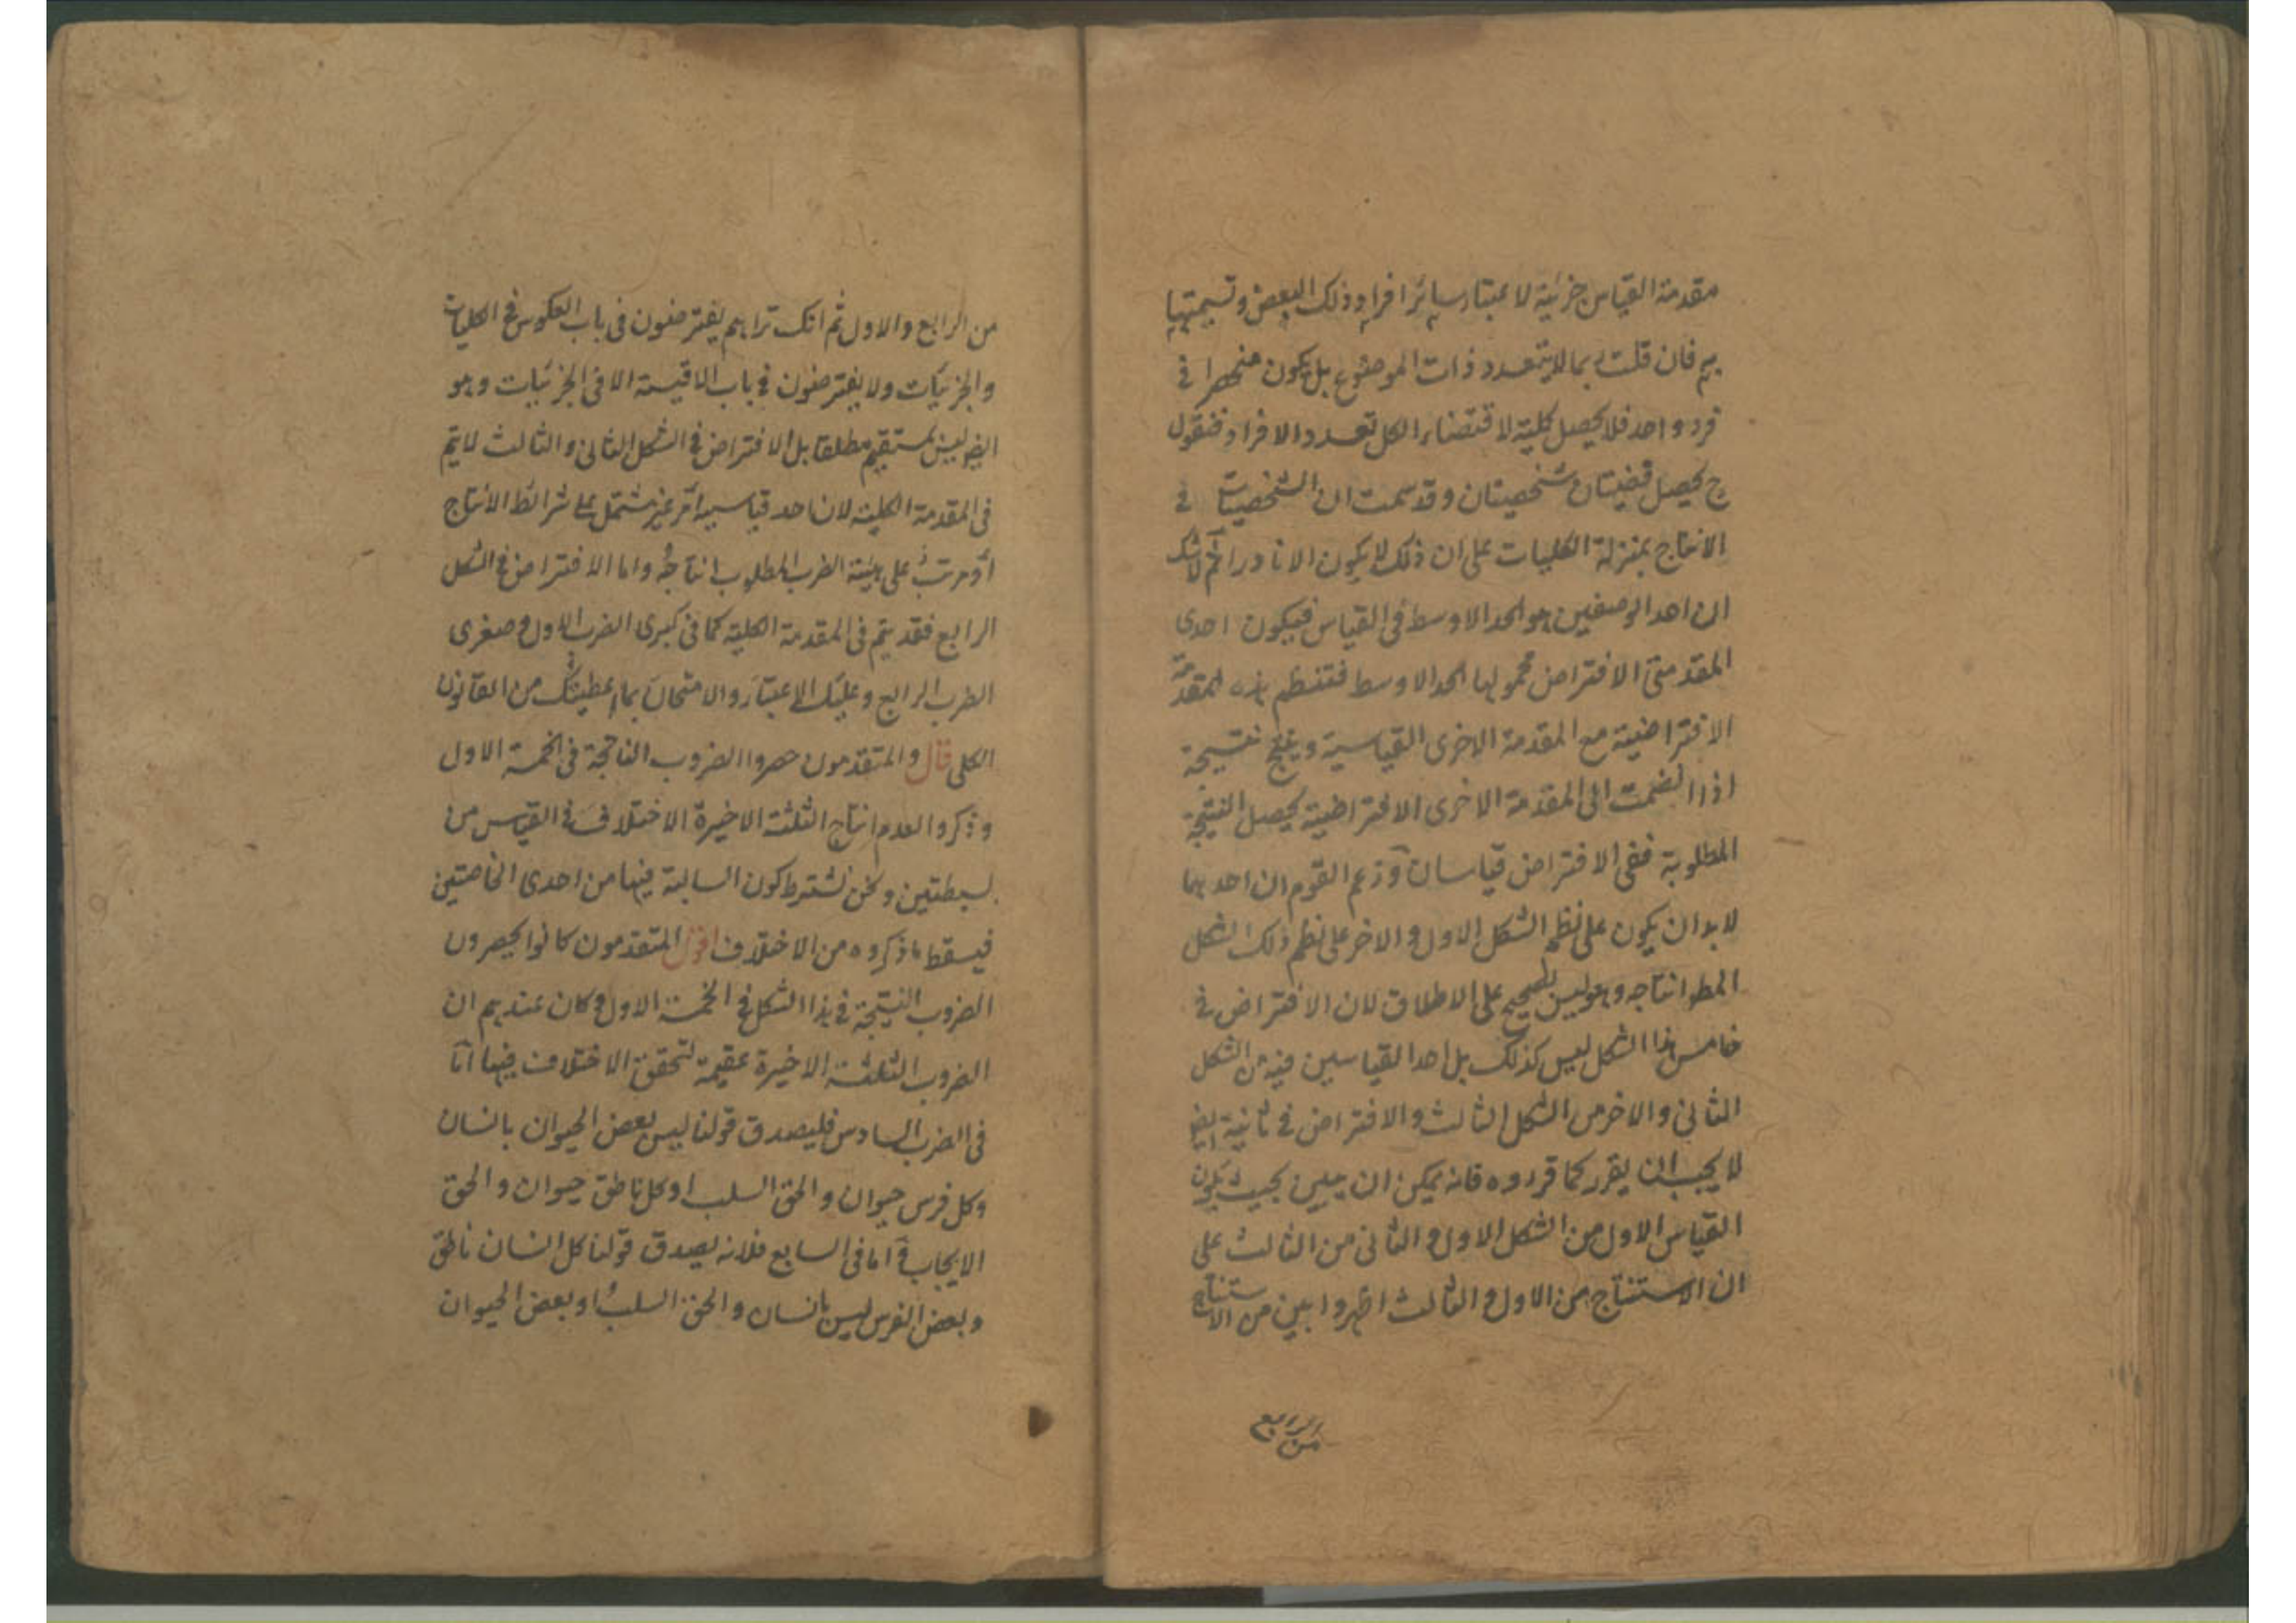 مقدمة القياس جزئية لاعتبار سائر افراد ذلك البعض وتسميتها
بم فان قلت ربما لا يتعدد ذات الموضوع بل يكون منحصرا في
فرد واحد فلا يحصل كلية لاقتضاء الكل تعدد الافراد فنقول
ح يحصل قضيتان شخصيتان وقد سمعت ان الشخصيات في
الانتاج بمنزلة الكليات على ان ذلك لا يكون الا نادرا ثم لا شك
ان احد الوصفين هو الحد الاوسط في القياس فيكون احدى
المقدمتي الافتراض محمولها الحد الاوسط فتنتظم هذه المقدمة
الافتراضية مع المقدمة الاخرى القياسية وينتج نتيجة
اذا انضمت الى المقدمة الاخرى الافتراضية يحصل النتيجة
المطلوبة ففي الافتراض قياسان وزعم القوم ان احدهما
لا بد ان يكون على نظم الشكل الاول والاخر على نظم ذلك الشكل
المط انتاجه وهو ليس بصحيح على الاطلاق لان الافتراض في
خامس هذا الشكل ليس كذلك بل احد القياسين فيه من الشكل
الثاني والاخر من الشكل الثالث والافتراض في ثانية ايض
لا يجب ان يقرر كما قرروه فانه يمكن ان يبين بحيث يكون
القياس الاول من الشكل الاول والثاني من الثالث على
ان الاستنتاج من الاول والثالث اظهر وابين من الاستنتاج
من الرابع
من الرابع والاول ثم انك تراهم يفترضون في باب العكوس في الكليات
والجزئيات ولا يفترضون في باب الاقيسة الا في الجزئيات وهو
ايض ليس بمستقيم مطلقا بل الافتراض في الشكل الثاني والثالث لا يتم
في المقدمة الكلية لان احد قياسيه اما غير مشتمل على شرائط الانتاج
او مرتب على هيئة الضرب المطلوب انتاجه واما الافتراض في الشكل
الرابع فقد يتم في المقدمة الكلية كما في كبرى الضرب الاول وصغرى
الضرب الرابع وعليك الاعتبار والامتحان بما اعطيتك من القانون
الكلي قال والمتقدمون حصروا الضروب الناتجة في الخمسة الاول
وذكروا لعدم انتاج الثلثة الاخيرة الاختلاف في القياس من
بسيطتين ونحن نشترط كون السالبة فيها من احدى الخاصتين
فيسقط ما ذكروه من الاختلاف اقول المتقدمون كانوا يحصرون
الضروب المنتجة في هذا الشكل في الخمسة الاول وكان عندهم ان
الضروب الثلثة الاخيرة عقيمة لتحقق الاختلاف فيها اما
في الضرب السادس فليصدق قولنا ليس بعض الحيوان بانسان
وكل فرس حيوان والحق السلب او كل ناطق حيوان والحق
الايجاب واما في السابع فلانه يصدق قولنا كل انسان ناطق
وبعض الفرس ليس بانسان والحق السلب او بعض الحيوان